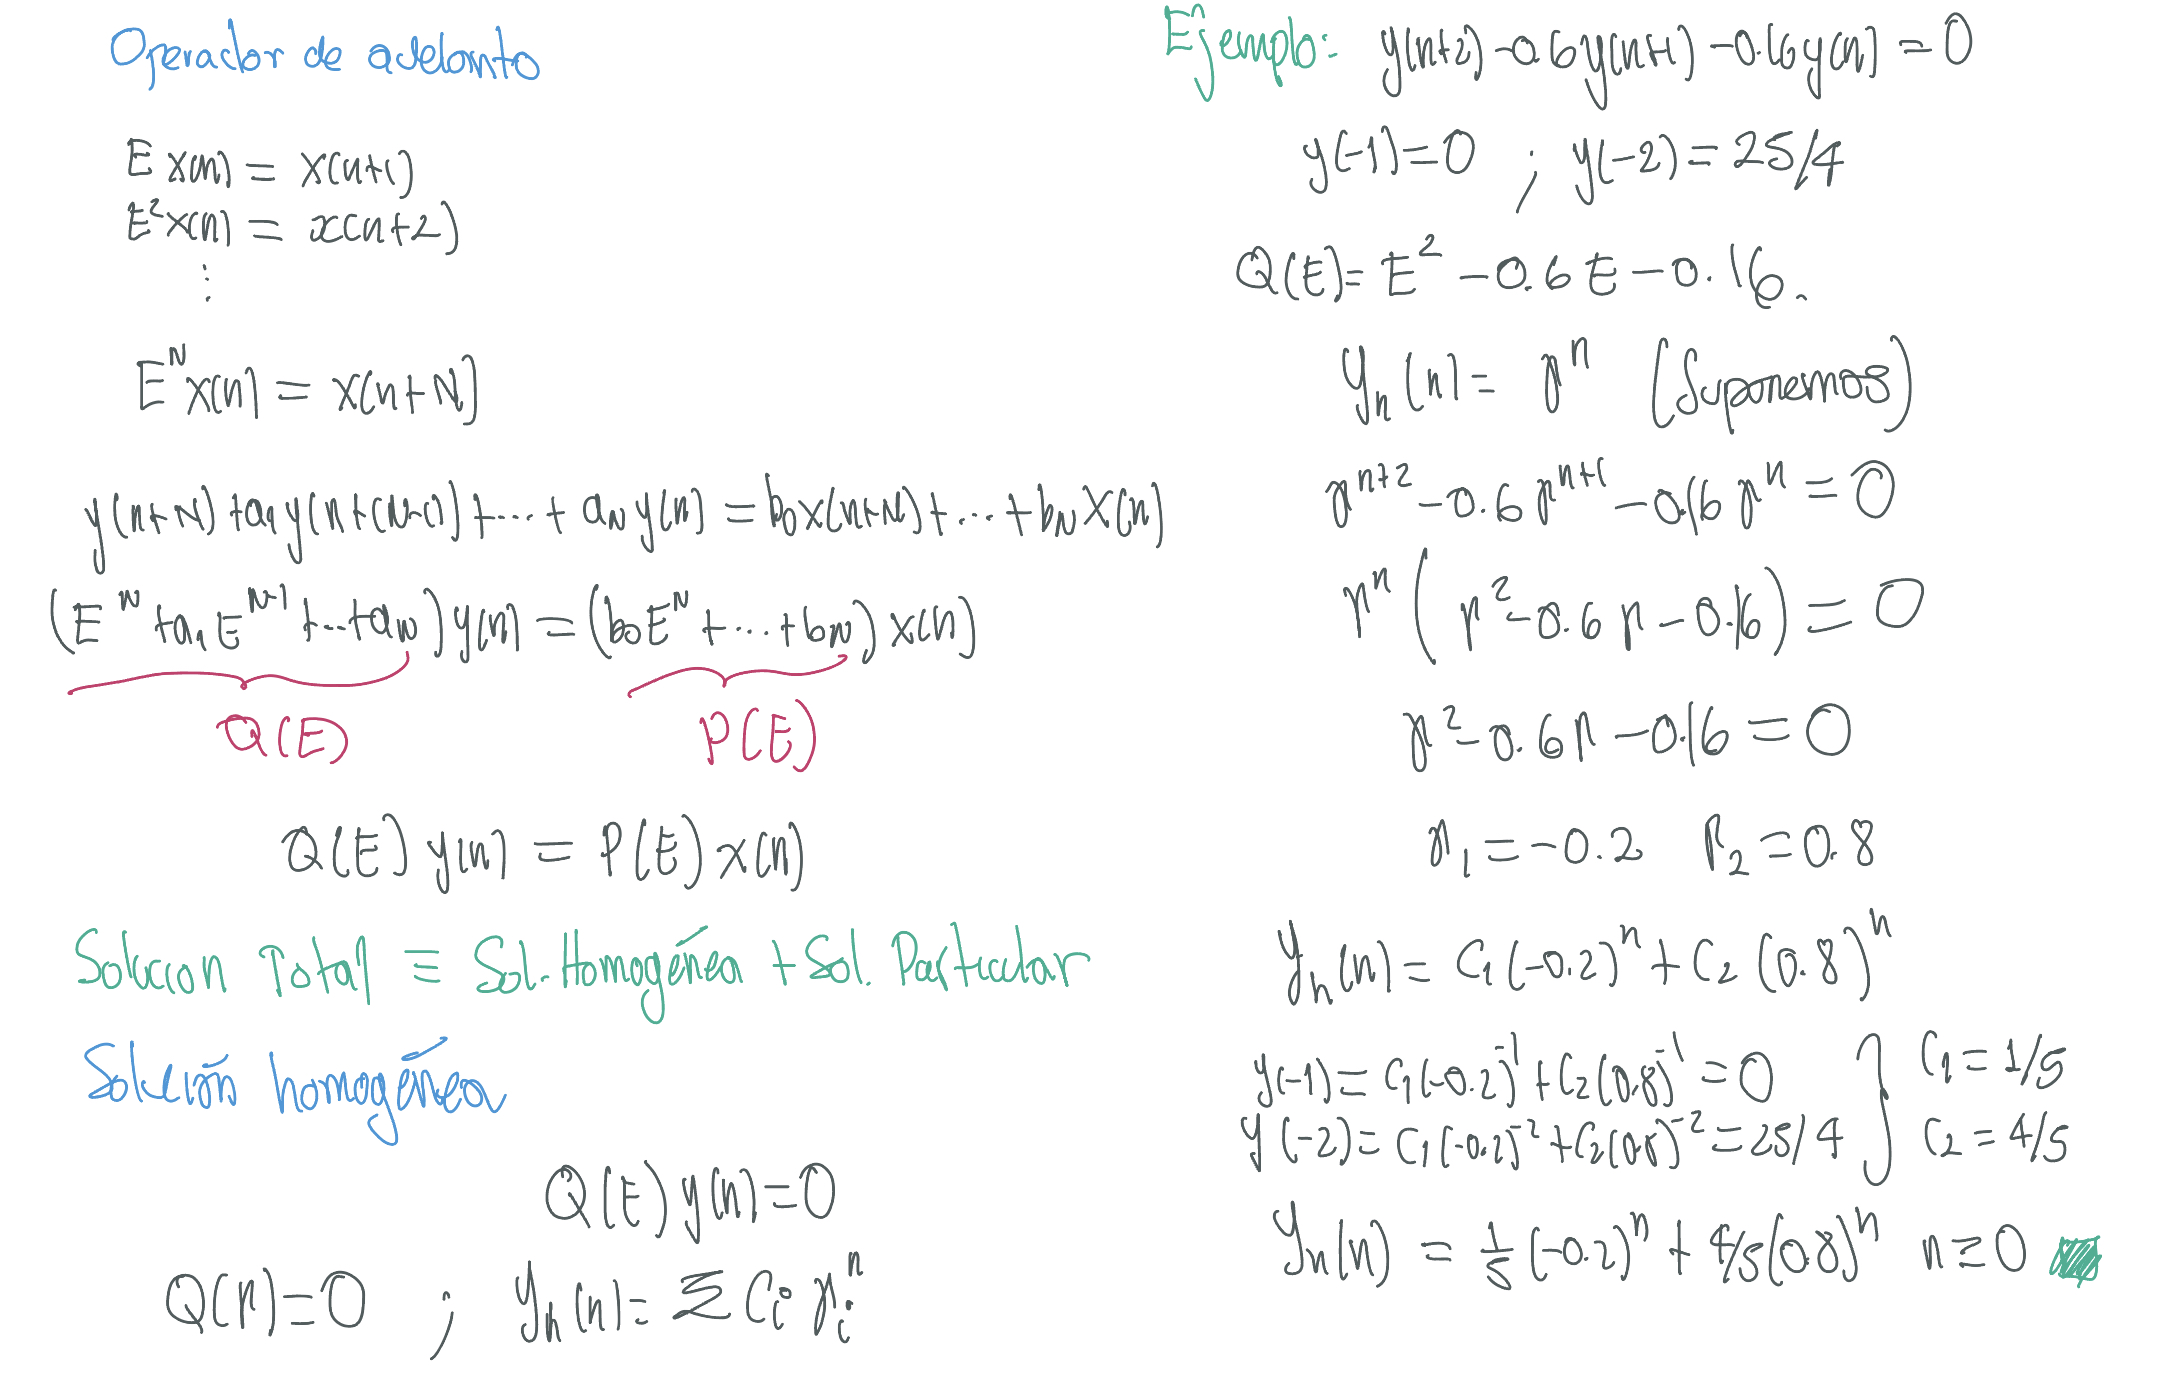 Operador de adelanto
E x(n) = x(n+1)
E² x(n) = x(n+2)
⋮
E^N x(n) = x(n+N)
y(n+N) + a₁ y(n+(N-1)) + ... + a_N y(n) = b₀ x(n+N) + ... + b_N x(n)
(E^N + a₁ E^(N-1) + ... + a_N) y(n) = (b₀ E^N + ... + b_N) x(n)
Q(E) P(E)
Q(E) y(n) = P(E) x(n)
Solucion Total ≡ Sol. Homogénea + Sol. Particular
Solución homogénea
Q(E) y(n) = 0
Q(r) = 0 ; y_h(n) = Σ C_i r_i^n
Ejemplo: y(n+2) - 0.6 y(n+1) - 0.16 y(n) = 0
y(-1) = 0 ; y(-2) = 25/4
Q(E) = E² - 0.6 E - 0.16.
y_h(n) = r^n (Suponemos)
r^(n+2) - 0.6 r^(n+1) - 0.16 r^n = 0
r^n (r² - 0.6 r - 0.16) = 0
r² - 0.6 r - 0.16 = 0
r₁ = -0.2 r₂ = 0.8
y_h(n) = C₁ (-0.2)^n + C₂ (0.8)^n
y(-1) = C₁ (-0.2)^-1 + C₂ (0.8)^-1 = 0 } C₁ = 1/5
y(-2) = C₁ (-0.2)^-2 + C₂ (0.8)^-2 = 25/4 } C₂ = 4/5
y_h(n) = 1/5 (-0.2)^n + 4/5 (0.8)^n n ≥ 0